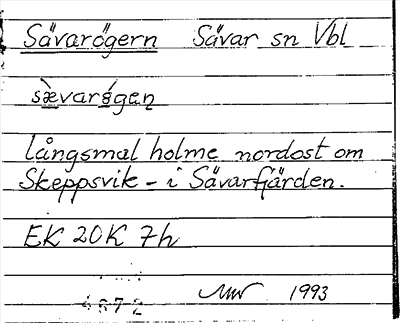 Sävarögern Sävar sn Vbl
sævarøgen
långsmal holme nordost om
Skeppsvik - i Sävarfjärden.
EK 20K 7h
1993